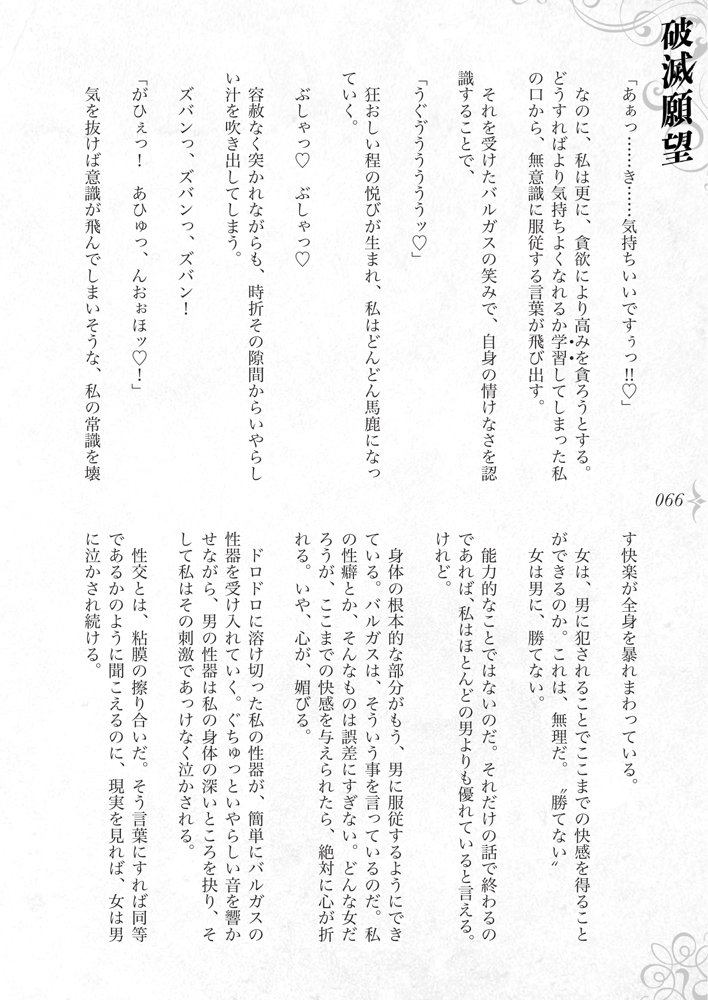 破滅願望
「あぁっ……き……気持ちいいですぅっ!!♡」
なのに、私は更に、貪欲により高みを貪ろうとする。
どうすればより気持ちよくなれるか学習してしまった私
の口から、無意識に服従する言葉が飛び出す。
それを受けたバルガスの笑みで、自身の情けなさを認
識することで、
「うぐゔううううッ♡」
狂おしい程の悦びが生まれ、私はどんどん馬鹿になっ
ていく。
ぶしゃっ♡　ぶしゃっ♡
容赦なく突かれながらも、時折その隙間からいやらし
い汁を吹き出してしまう。
ズバンっ、ズバンっ、ズバン！
「がひぇっ！　あひゅっ、んおぉほッ♡！」
気を抜けば意識が飛んでしまいそうな、私の常識を壊
066
す快楽が全身を暴れまわっている。
女は、男に犯されることでここまでの快感を得ること
ができるのか。これは、無理だ。〝勝てない〟
女は男に、勝てない。
能力的なことではないのだ。それだけの話で終わるの
であれば、私はほとんどの男よりも優れていると言える。
けれど。
身体の根本的な部分がもう、男に服従するようにでき
ている。バルガスは、そういう事を言っているのだ。私
の性癖とか、そんなものは誤差にすぎない。どんな女だ
ろうが、ここまでの快感を与えられたら、絶対に心が折
れる。いや、心が、媚びる。
ドロドロに溶け切った私の性器が、簡単にバルガスの
性器を受け入れていく。ぐちゅっといやらしい音を響か
せながら、男の性器は私の身体の深いところを抉り、そ
して私はその刺激であっけなく泣かされる。
性交とは、粘膜の擦り合いだ。そう言葉にすれば同等
であるかのように聞こえるのに、現実を見れば、女は男
に泣かされ続ける。